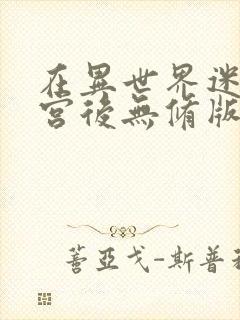 在異世界迷
宮後無脩版
蓍亞戈-斯普